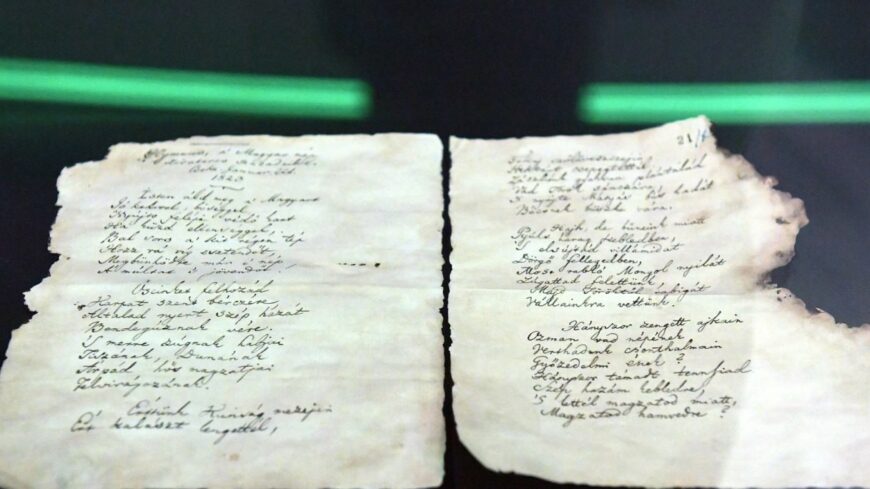 Hymnus, a' Magyar nép
zivataros századaiból.
Januar
1823
Isten áld meg a' Magyart
Jó kedvel, bőséggel
Nyújts feléje védő kart
Ha küzd ellenséggel;
Bal sors a' kit régen tép
Hozz rá víg esztendőt,
Megbűnhődte már e' nép
A' múltat 's jövendőt!
Őseinket felhozád
Kárpát szent bérczére,
Általad nyert szép hazát
Bendegúznak vére.
'S merre zúgnak habjai
Tiszának, Dunának
Árpád hős magzatjai
Felvirágozának.
Értünk Kunság mezején
Ért kalászt lengettél,
21/
szőlővesszein
Nektárt csepegtettél.
Zászlónk gyakran plántálád
Vad Török sánczára
'S nyögte Mátyás bús hadát
Bécsnek büszke vára.
Hajh, de bűneink miatt
Gyúlt harag kebledben,
'S elsújtád villámidat
Dörgő fellegedben,
Most rabló Mongol nyilát
Zúgattad felettünk,
Majd Töröktől rabigát
Vállainkra vettünk.
Hányszor zengett ajkain
Ozman vad népének
Vert hadunk csonthalmain
Győzedelmi ének?
Hányszor támadt tennfiad
Szép hazám kebledre,
'S lettél magzatod miatt,
Magzatod hamvvedre?